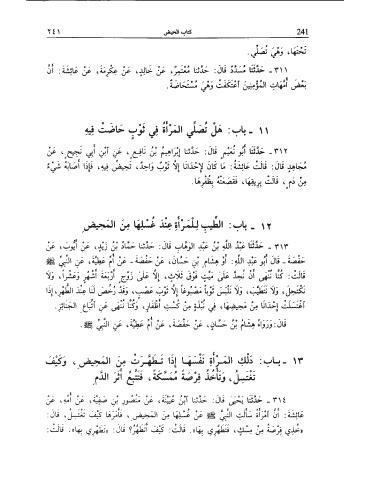 ٢٤١ كتاب الحيض 241
تَحْتَهَا، وَهْيَ تُصَلِّي.
٣١١ - حَدَّثَنَا مُسَدَّدٌ قَالَ: حَدَّثَنَا مُعْتَمِرٌ، عَنْ خَالِدٍ، عَنْ عِكْرِمَةَ، عَنْ عَائِشَةَ: أَنَّ
بَعْضَ أُمَّهَاتِ المُؤْمِنِينَ اعْتَكَفَتْ وَهْيَ مُسْتَحَاضَةٌ.
١١ - باب: هَلْ تُصَلِّي المَرْأَةُ فِي ثَوْبٍ حَاضَتْ فِيهِ
٣١٢ - حَدَّثَنَا أَبُو نُعَيْمٍ قَالَ: حَدَّثَنَا إِبْرَاهِيمُ بْنُ نَافِعٍ، عَنِ ابْنِ أَبِي نَجِيحٍ، عَنْ
مُجَاهِدٍ قَالَ: قَالَتْ عَائِشَةُ: مَا كَانَ لِإِحْدَانَا إِلَّا ثَوْبٌ وَاحِدٌ، تَحِيضُ فِيهِ، فَإِذَا أَصَابَهُ شَيْءٌ
مِنْ دَمٍ، قَالَتْ بِرِيقِهَا، فَقَصَعَتْهُ بِظُفْرِهَا.
١٢ - باب: الطِّيبِ لِلْمَرْأَةِ عِنْدَ غُسْلِهَا مِنَ المَحِيضِ
٣١٣ - حَدَّثَنَا عَبْدُ اللَّهِ بْنُ عَبْدِ الوَهَّابِ قَالَ: حَدَّثَنَا حَمَّادُ بْنُ زَيْدٍ، عَنْ أَيُّوبَ، عَنْ
حَفْصَةَ - قَالَ أَبُو عَبْدِ اللَّهِ: أَوْ هِشَامِ بْنِ حَسَّانَ، عَنْ حَفْصَةَ - عَنْ أُمِّ عَطِيَّةَ، عَنِ النَّبِيِّ ﷺ
قَالَتْ: كُنَّا نُنْهَى أَنْ نُحِدَّ عَلَى مَيِّتٍ فَوْقَ ثَلَاثٍ، إِلَّا عَلَى زَوْجٍ أَرْبَعَةَ أَشْهُرٍ وَعَشْراً، وَلَا
نَكْتَحِلَ، وَلَا نَتَطَيَّبَ، وَلَا نَلْبَسَ ثَوْباً مَصْبُوغاً إِلَّا ثَوْبَ عَصْبٍ، وَقَدْ رُخِّصَ لَنَا عِنْدَ الطُّهْرِ، إِذَا
اغْتَسَلَتْ إِحْدَانَا مِنْ مَحِيضِهَا، فِي نُبْذَةٍ مِنْ كُسْتِ أَظْفَارٍ، وَكُنَّا نُنْهَى عَنِ اتِّبَاعِ الجَنَائِزِ.
قَالَ: وَرَوَاهُ هِشَامُ بْنُ حَسَّانَ، عَنْ حَفْصَةَ، عَنْ أُمِّ عَطِيَّةَ، عَنِ النَّبِيِّ ﷺ.
١٣ - باب: دَلْكِ المَرْأَةِ نَفْسَهَا إِذَا تَطَهَّرَتْ مِنَ المَحِيضِ، وَكَيْفَ
تَغْتَسِلُ، وَتَأْخُذُ فِرْصَةً مُمَسَّكَةً، فَتَتَّبِعُ أَثَرَ الدَّمِ
٣١٤ - حَدَّثَنَا يَحْيَى قَالَ: حَدَّثَنَا ابْنُ عُيَيْنَةَ، عَنْ مَنْصُورِ بْنِ صَفِيَّةَ، عَنْ أُمِّهِ، عَنْ
عَائِشَةَ: أَنَّ امْرَأَةً سَأَلَتِ النَّبِيَّ ﷺ عَنْ غُسْلِهَا مِنَ المَحِيضِ، فَأَمَرَهَا كَيْفَ تَغْتَسِلُ، قَالَ:
«خُذِي فِرْصَةً مِنْ مِسْكٍ، فَتَطَهَّرِي بِهَا». قَالَتْ: كَيْفَ أَتَطَهَّرُ؟ قَالَ: «تَطَهَّرِي بِهَا». قَالَتْ: